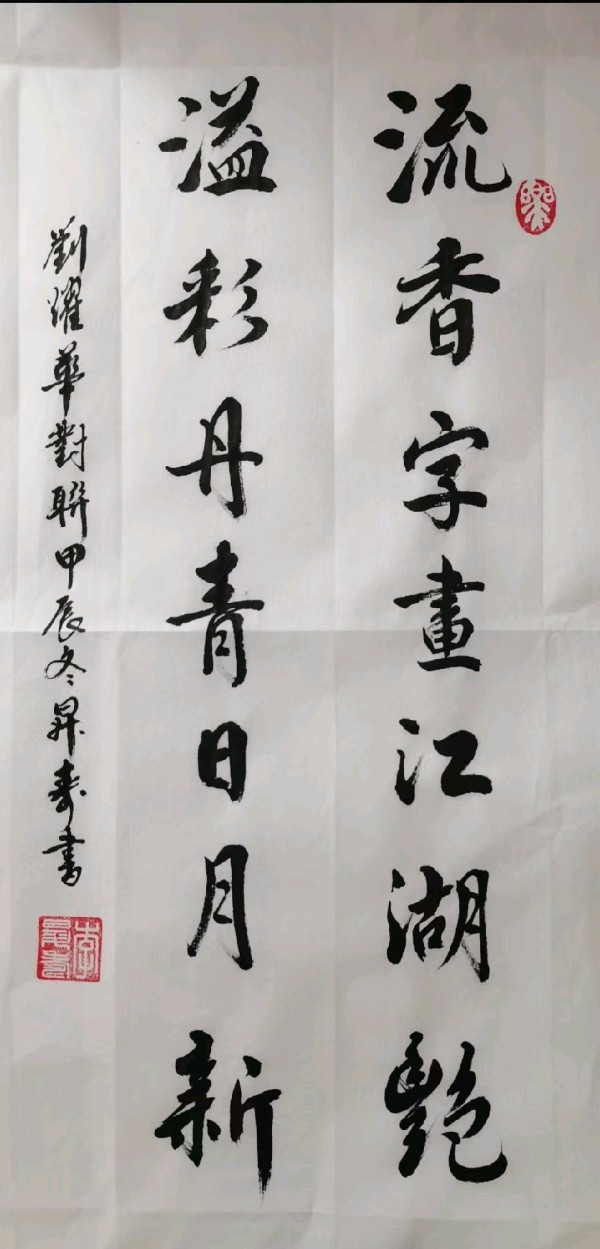 流香字畫江湖艷
溢彩丹青日月新
劉耀華對聯甲辰冬昇壽書